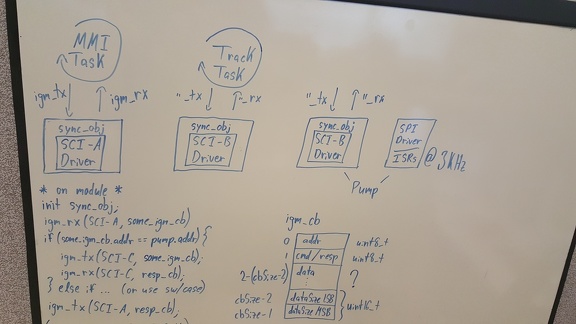 MMI
Task
Track
Task
igm_tx
igm_rx
"_tx
"_rx
"_tx
"_rx
sync_obj
SCI-A
Driver
sync_obj
SCI-B
Driver
sync_obj
SCI-B
Driver
SPI
Driver
ISRs
@ 3KHz
Pump
* on module *
init sync_obj;
igm_rx (SCI-A, some_igm_cb)
if (some_igm_cb.addr == pump.addr) {
igm_tx (SCI-C, some_igm_cb);
igm_rx (SCI-C, resp_cb);
} else if ... (or use sw/case)
igm_tx (SCI-A, resp_cb);
igm_cb
0 addr uint8_t
1 cmd/resp uint8_t
2-(cbSize-2) data ?
cbSize-2 dataSize LSB
cbSize-1 dataSize MSB
uint16_t